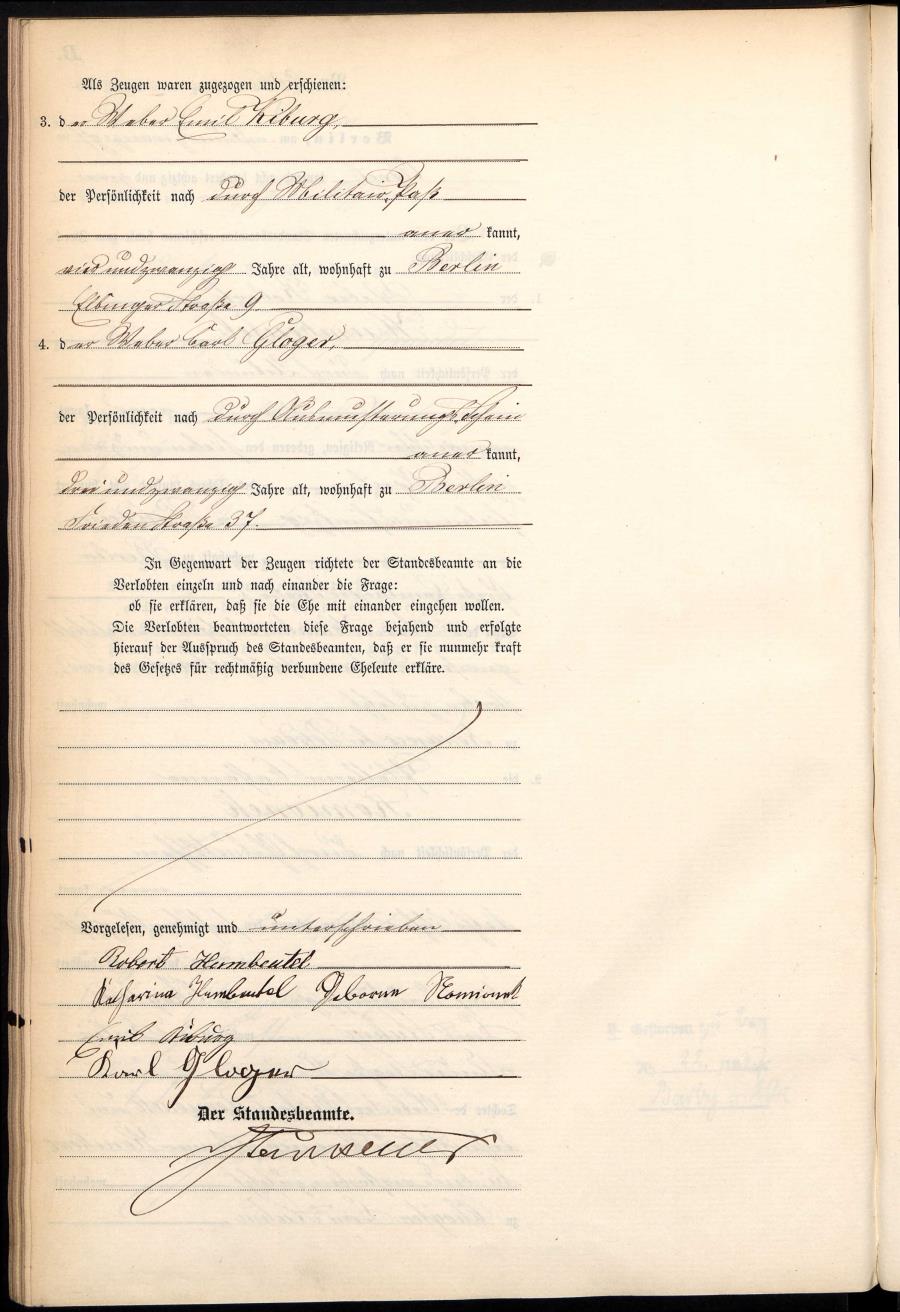 Als Zeugen waren zugezogen und erschienen:
3. der Weber Emil Kiburg,
der Persönlichkeit nach durch Militair-Paß
aner kannt,
vierundzwanzig Jahre alt, wohnhaft zu Berlin
Elbinger Straße 9.
4. der Weber Carl Gloger,
der Persönlichkeit nach durch Ausmusterungs-Schein
aner kannt,
dreiundzwanzig Jahre alt, wohnhaft zu Berlin
Friedenstraße 37.
In Gegenwart der Zeugen richtete der Standesbeamte an die
Verlobten einzeln und nach einander die Frage:
ob sie erklären, daß sie die Ehe mit einander eingehen wollen.
Die Verlobten beantworteten diese Frage bejahend und erfolgte
hierauf der Ausspruch des Standesbeamten, daß er sie nunmehr kraft
des Gesetzes für rechtmäßig verbundene Eheleute erkläre.
Vorgelesen, genehmigt und unterschrieben
Robert Humbeutel
Katharina Humbeutel Geborne Nomionek
Emil Kiburg
Karl Gloger
Der Standesbeamte.